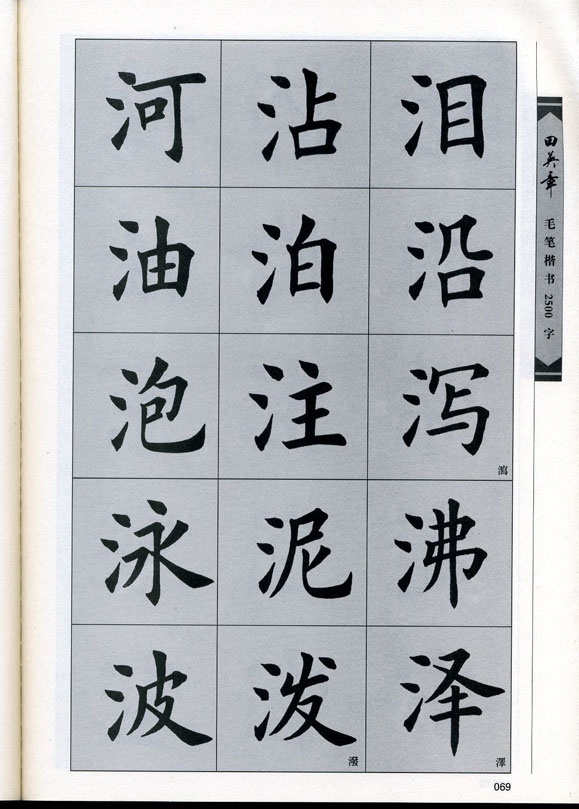 河 沾 泪
油 泊 沿
泡 注 泻
瀉
泳 泥 沸
波 泼 泽
潑 澤
田英章 毛笔楷书 2500 字
069